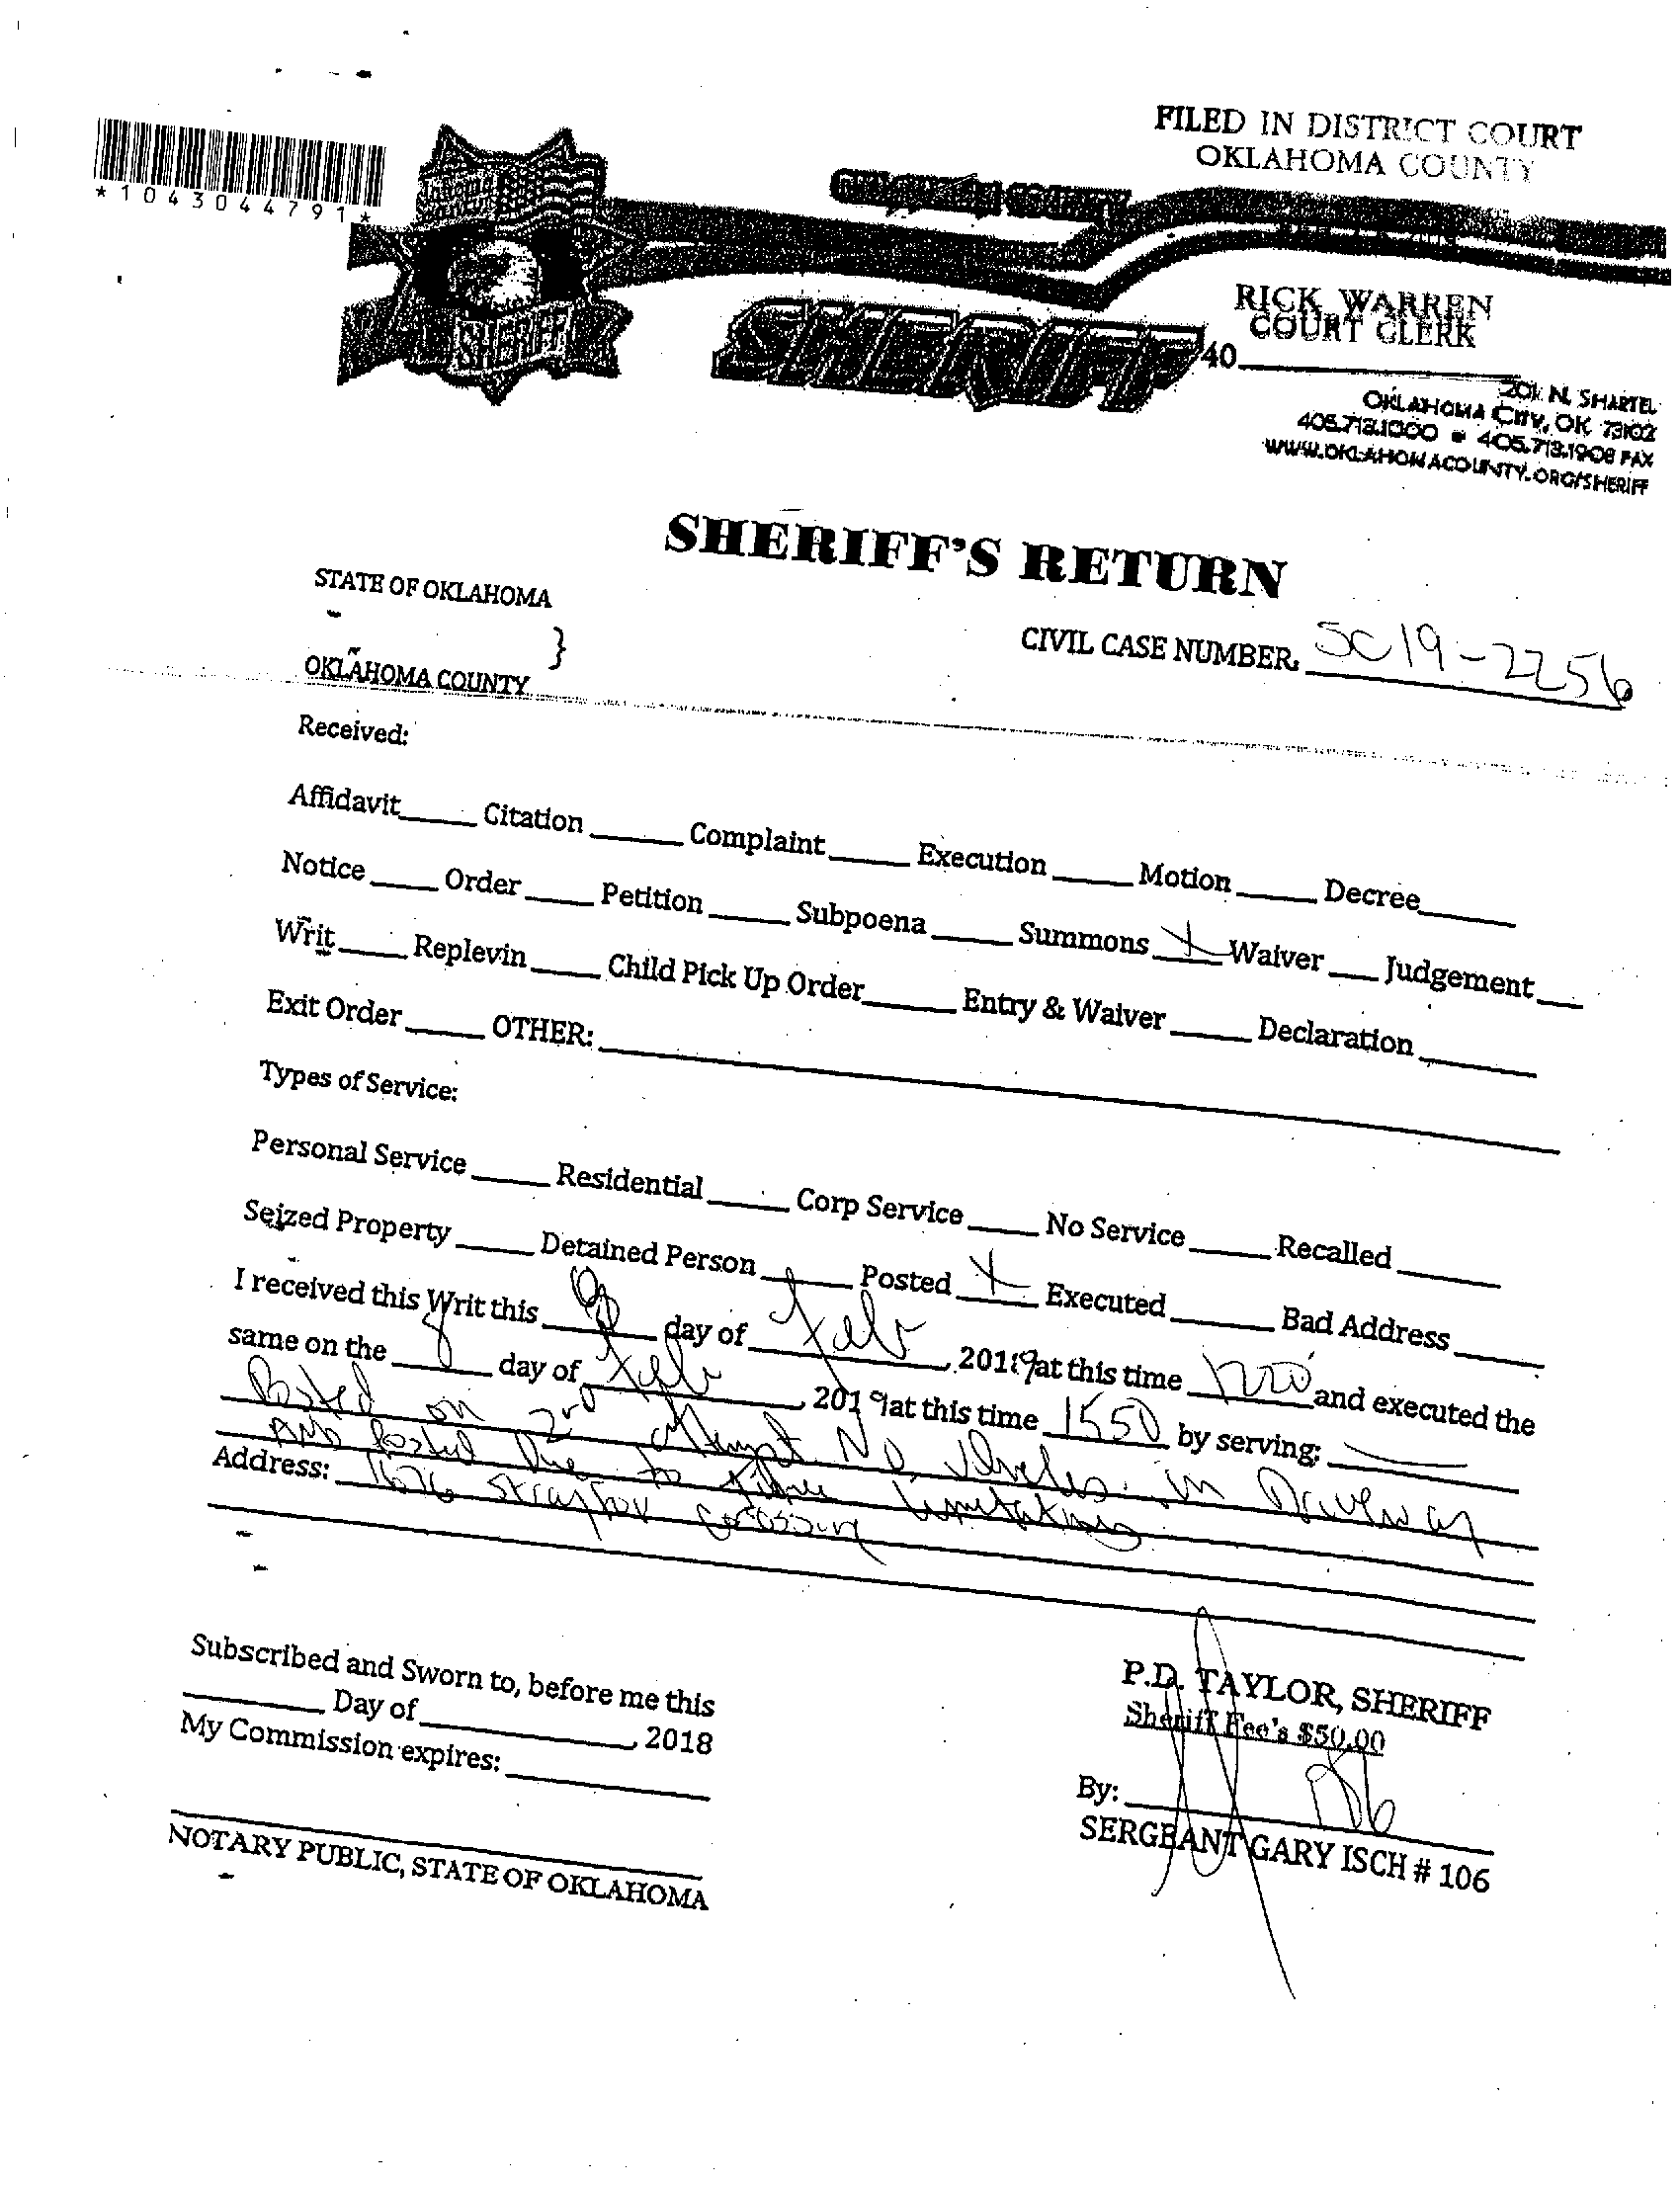 FILED IN DISTRICT COURT
OKLAHOMA COUNTY
*1043044791*
OKLAHOMA COUNTY
SHERIFF
SHERIFF
RICK WARREN
COURT CLERK
40
201 N. SHARTEL
OKLAHOMA CITY, OK 73102
405.713.1000 • 405.713.1908 FAX
WWW.OKLAHOMACOUNTY.ORG/SHERIFF
SHERIFF'S RETURN
STATE OF OKLAHOMA
}
OKLAHOMA COUNTY
CIVIL CASE NUMBER: SC19-2256
Received:
Affidavit_____ Citation_____ Complaint_____ Execution_____ Motion_____ Decree_____
Notice_____ Order_____ Petition_____ Subpoena_____ Summons X Waiver___ Judgement___
Writ_____ Replevin_____ Child Pick Up Order_____ Entry & Waiver_____ Declaration_____
Exit Order_____ OTHER:_____
Types of Service:
Personal Service_____ Residential_____ Corp Service_____ No Service_____ Recalled_____
Seized Property_____ Detained Person_____ Posted X Executed_____ Bad Address_____
I received this Writ this 8 day of Feb, 2019 at this time and executed the
same on the 8 day of Feb, 2019 at this time 1550 by serving:
Posted on 2nd attempt No Vehicles in Driveway
AND Posted Due to time limitations
Address: 1676 Crossing
Subscribed and Sworn to, before me this
_____ Day of_____, 2018
My Commission expires:_____
NOTARY PUBLIC, STATE OF OKLAHOMA
P.D. TAYLOR, SHERIFF
Sheriff Fee's $50.00
By:
SERGEANT GARY ISCH # 106